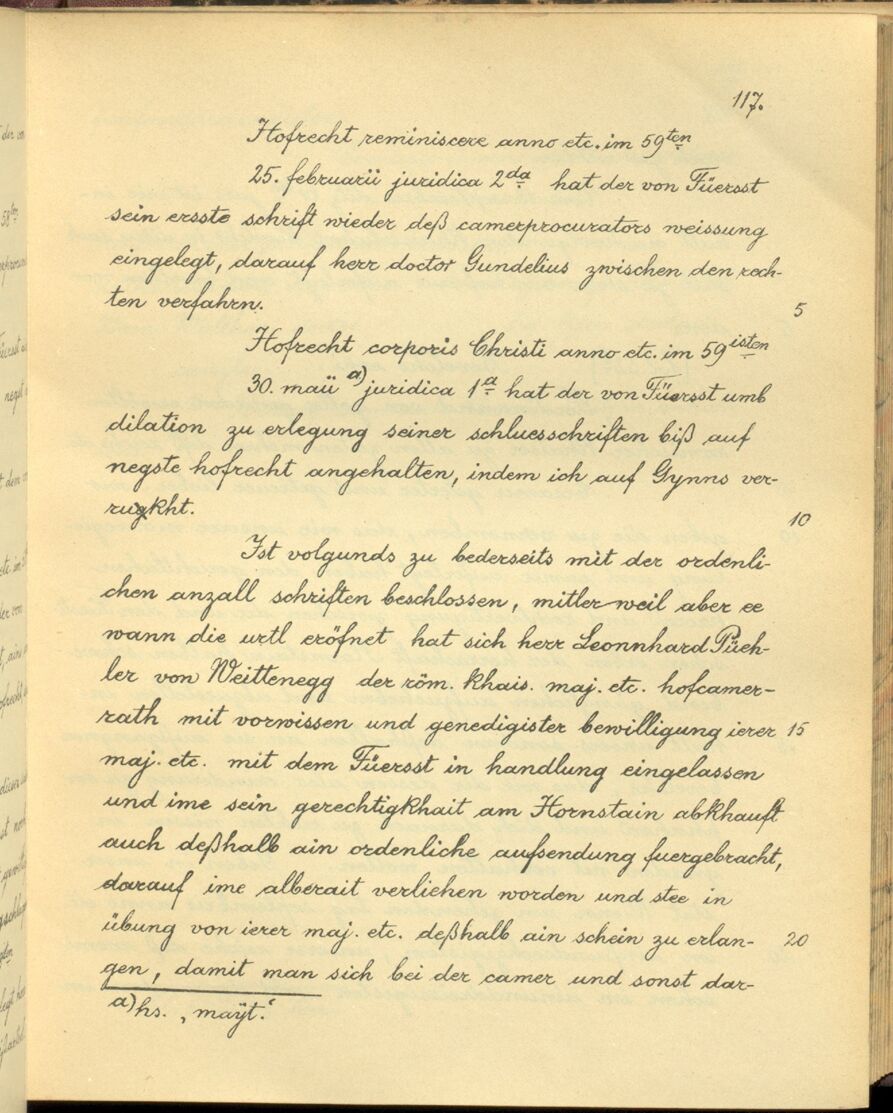 117.
Hofrecht reminiscere anno etc. im 59ten
25. februarii juridica 2da hat der von Füersst
sein ersste schrift wieder deß camerprocurators weissung
eingelegt, darauf herr doctor Gundelius zwischen den rech-
ten verfahrn. 5
Hofrecht corporis Christi anno etc. im 59isten
30. maii a) juridica 1a hat der von Füersst umb
dilation zu erlegung seiner schluesschriften biß auf
negste hofrecht angehalten, indem ich auf Gynns ver-
rugkht. 10
Ist volgunds zu bederseits mit der ordenli-
chen anzall schriften beschlossen, mitler weil aber ee
wann die urtl eröfnet hat sich herr Leonnhard Püch-
ler von Weittenegg der röm. khais. maj. etc. hofcamer-
rath mit vorwissen und genedigister bewilligung ierer 15
maj. etc. mit dem Füersst in handlung eingelassen
und ime sein gerechtigkhait am Hornstain abkhauft
auch deßhalb ain ordenliche aufsendung fuergebracht,
darauf ime alberait verliehen worden und stee in
übung von ierer maj. etc. deßhalb ain schein zu erlan- 20
gen, damit man sich bei der camer und sonst dar-
a) hs. „mayt.“